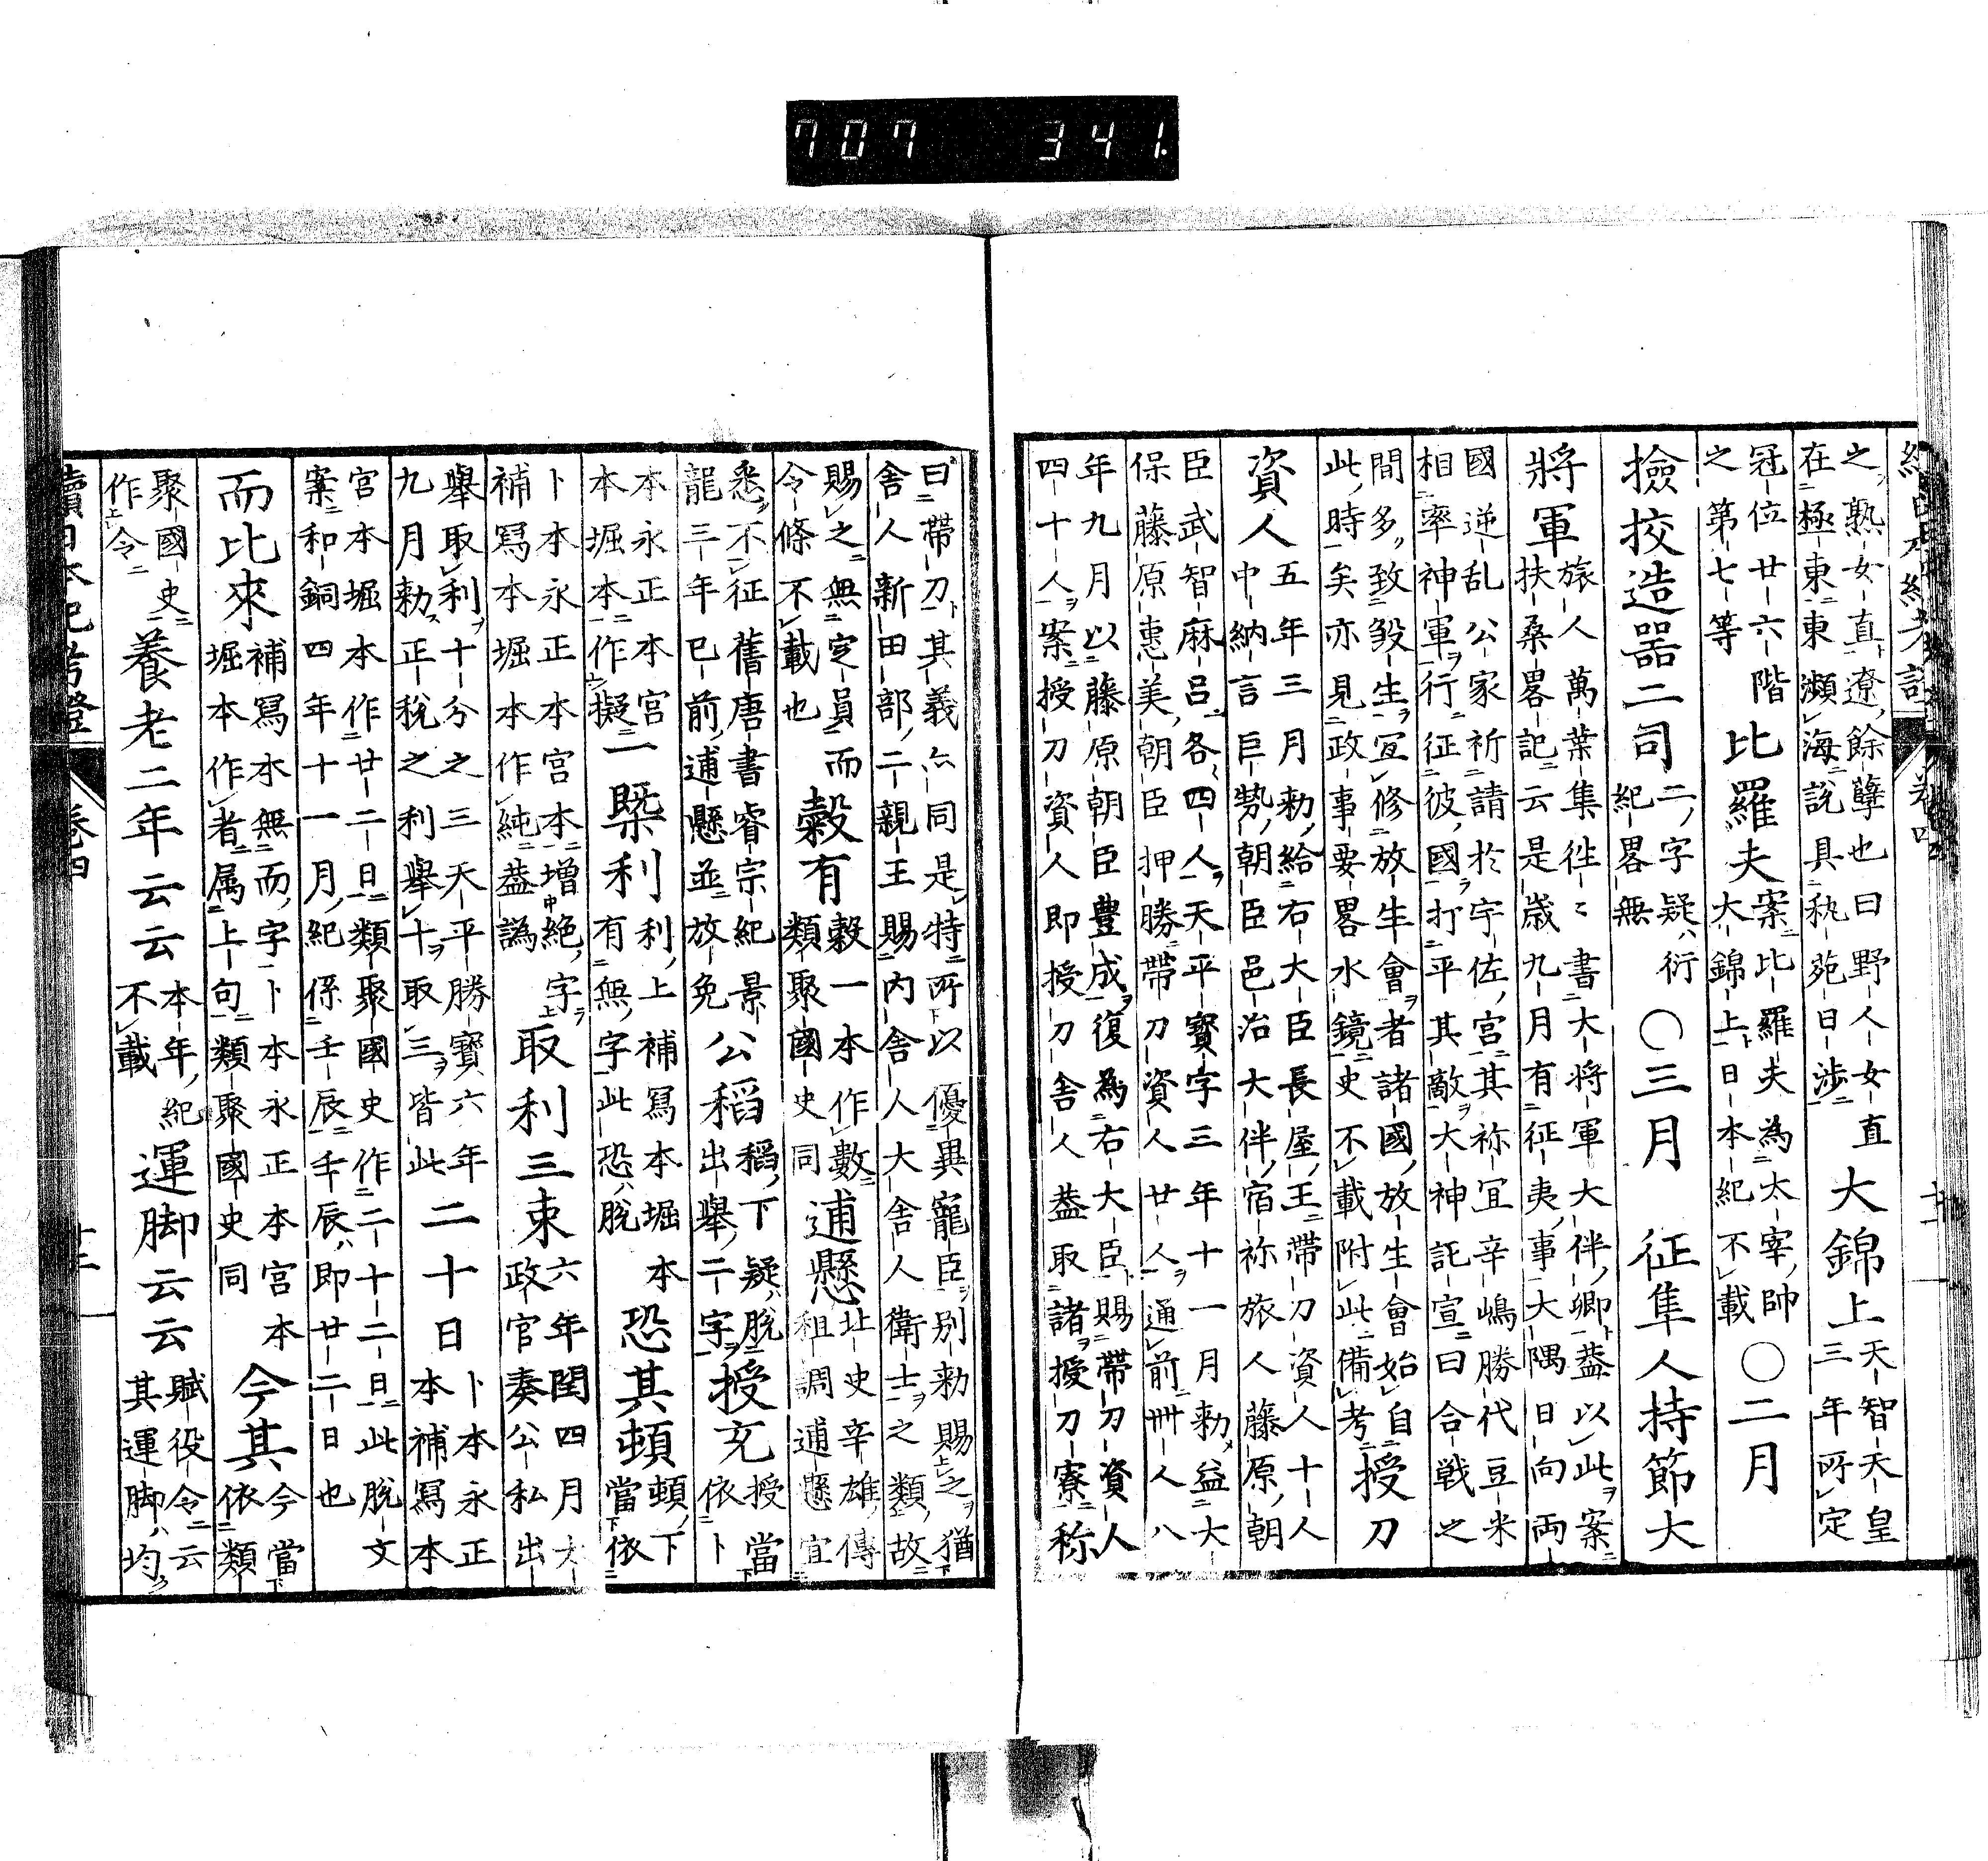 707 341.
之熟女直遼餘孽也曰野人女直
在極東東瀕海說具秇苑日涉
大錦上
天智天皇
三年所定
冠位廿六階
之第七等
比羅夫
案比羅夫為太宰帥
大錦上日本紀不載
〇二月
撿挍造器二司
二字疑衍
紀畧無
〇三月 征隼人持節大
將軍
旅人萬葉集徃〻書大将軍大伴卿蓋以此案
扶桑畧記云是歲九月有征夷事大隅日向両
國逆乱公家祈請於宇佐宮其祢宜辛嶋勝代豆米
相率神軍行征彼國打平其敵大神託宣曰合戦之
間多致殺生宜修放生會者諸國放生會始自
此時矣亦見政事要畧水鏡史不載附此備考
授刀
資人
五年三月勑給右大臣長屋王帶刀資人十人
中納言巨勢朝臣邑治大伴宿祢旅人藤原朝
臣武智麻呂各四人天平寶字三年十一月勑益大
保藤原惠美朝臣押勝帶刀資人廿人通前卌人八
年九月以藤原朝臣豊成復為右大臣賜帶刀資人
四十人案授刀資人即授刀舍人蓋取諸授刀寮称
曰帶刀其義亦同是特所以優異寵臣別勑賜之猶
舍人新田部二親王賜內舍人大舍人衛士之類故
賜之無定員而
令條不載也
穀有
穀一本作數
類聚國史同
逋懸
北史辛雄傳
租調逋懸宜
悉不征舊唐書睿宗紀景
龍三年已前逋懸並放免
公稻
稻下疑脫
出舉二字
授充
授當
依卜
本永正本宮
本堀本作擬
一槩利
利上補寫本堀本
有無字此恐脫
恐其頓
頓下
當依
卜本永正本宮本增絶字
補寫本堀本作純蓋譌
取利三束
六年閏四月太
政官奏公私出
舉取利十分之三天平勝寶六年
九月勑正稅之利舉十取三皆此
二十日
卜本永正
本補寫本
宮本堀本作廿二日類聚國史作二十二日此脫文
案和銅四年十一月紀係壬辰壬辰即廿二日也
而比來
補寫本無而字卜本永正本宮本
堀本作者属上句類聚國史同
今其
今當
依類
聚國史
作令
養老二年云云
本年紀
不載
運脚云云
賦役令云
其運脚均
續日本紀考證 卷四 十二